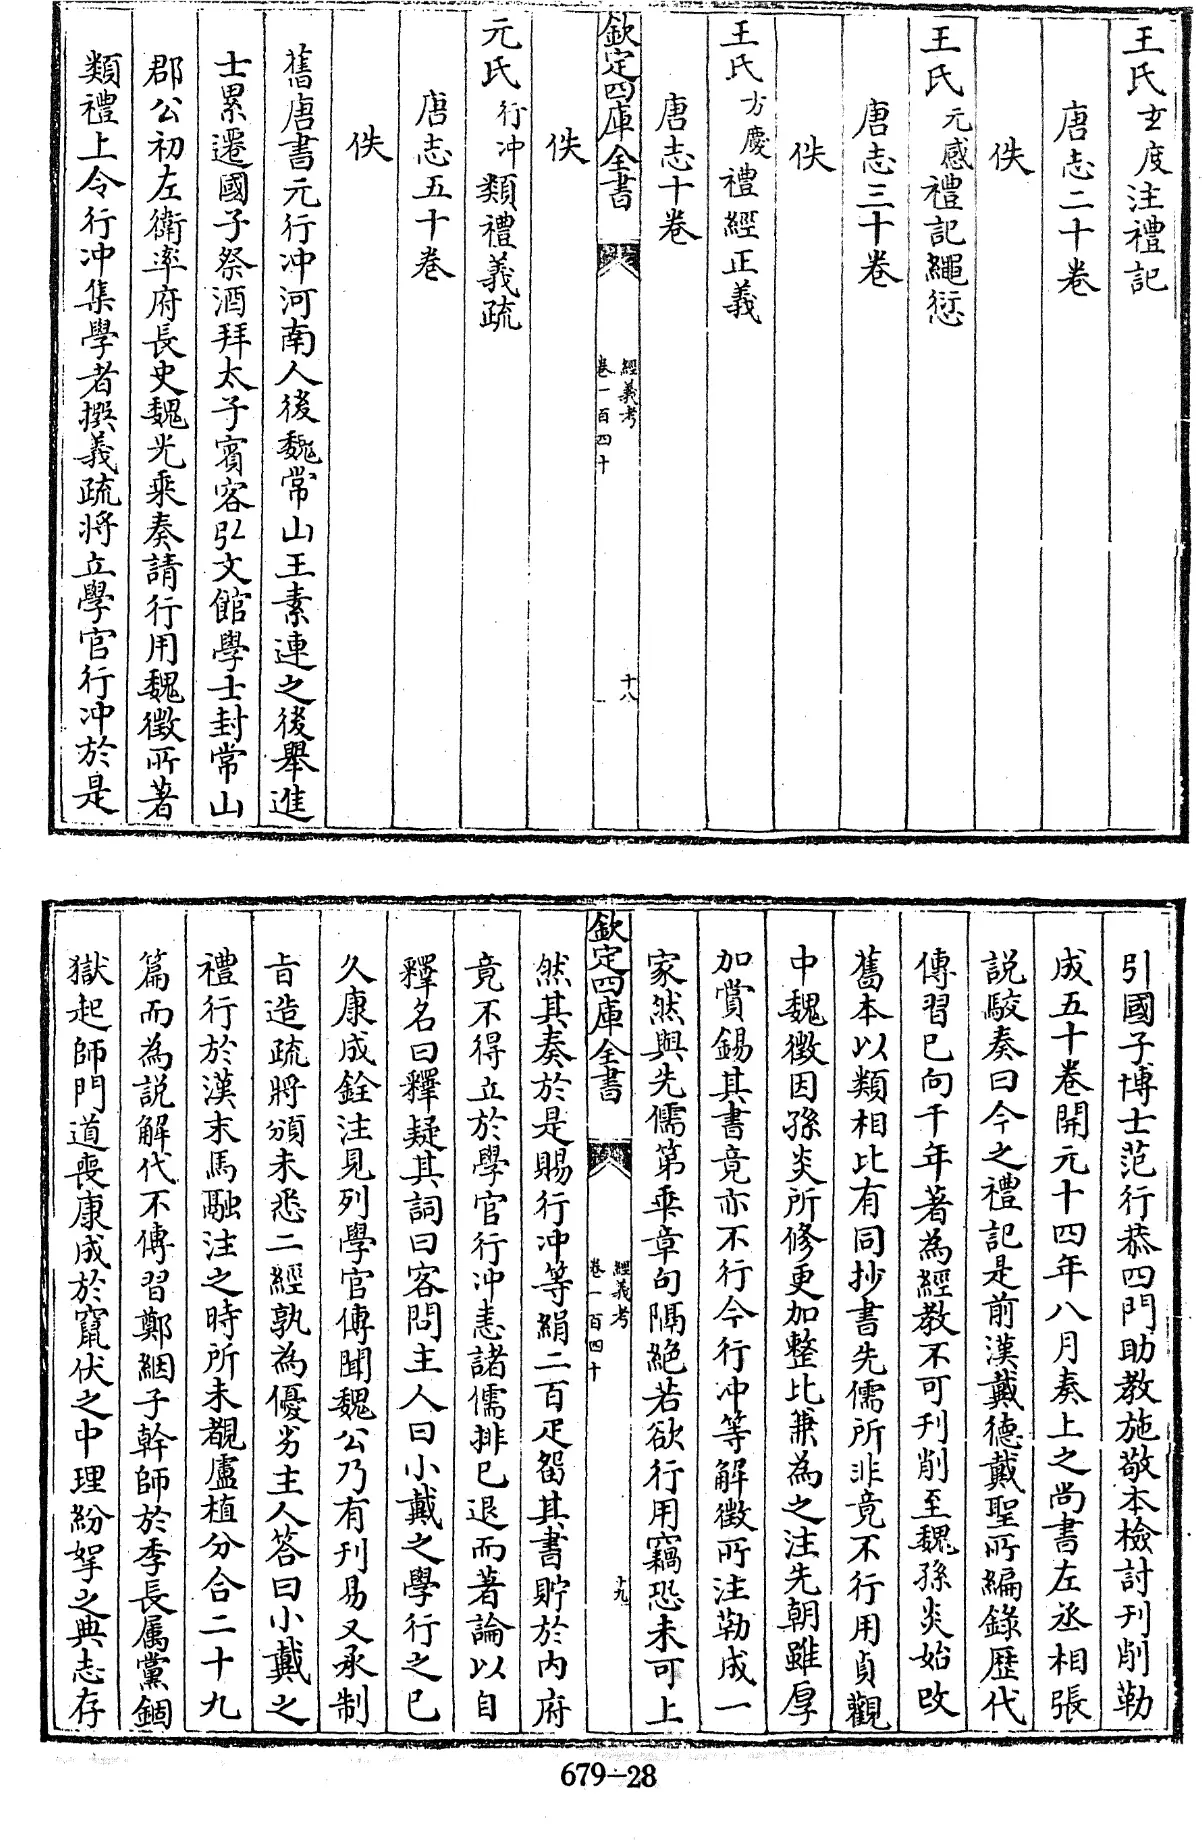 王氏玄度注禮記
唐志二十卷
佚
王氏元感禮記繩愆
唐志三十卷
佚
王氏方慶禮經正義
唐志十卷
欽定四庫全書
經義考
卷一百四十
十八
佚
元氏行冲類禮義疏
唐志五十卷
佚
舊唐書元行冲河南人後魏常山王素連之後舉進
士累遷國子祭酒拜太子賓客弘文館學士封常山
郡公初左衛率府長史魏光乘奏請行用魏徵所著
類禮上令行冲集學者撰義疏將立學官行冲於是
引國子博士范行恭四門助教施敬本檢討刊削勒
成五十卷開元十四年八月奏上之尚書左丞相張
説駮奏曰今之禮記是前漢戴德戴聖所編錄歴代
傳習已向千年著為經教不可刊削至魏孫炎始改
舊本以類相比有同抄書先儒所非竟不行用貞觀
中魏徵因孫炎所修更加整比兼為之注先朝雖厚
加賞錫其書竟亦不行今行冲等解徵所注勒成一
家然與先儒第乖章句隔絶若欲行用竊恐未可上
欽定四庫全書
經義考
卷一百四十
十九
然其奏於是賜行冲等絹二百疋留其書貯於内府
竟不得立於學官行冲恚諸儒排已退而著論以自
釋名曰釋疑其詞曰客問主人曰小戴之學行之已
久康成銓注見列學官傳聞魏公乃有刊易又承制
旨造疏將頒未悉二經孰為優劣主人答曰小戴之
禮行於漢末馬融注之時所未覩盧植分合二十九
篇而為説解代不傳習鄭絪子幹師於季長属黨錮
獄起師門道喪康成於竄伏之中理紛挐之典志存
679-28